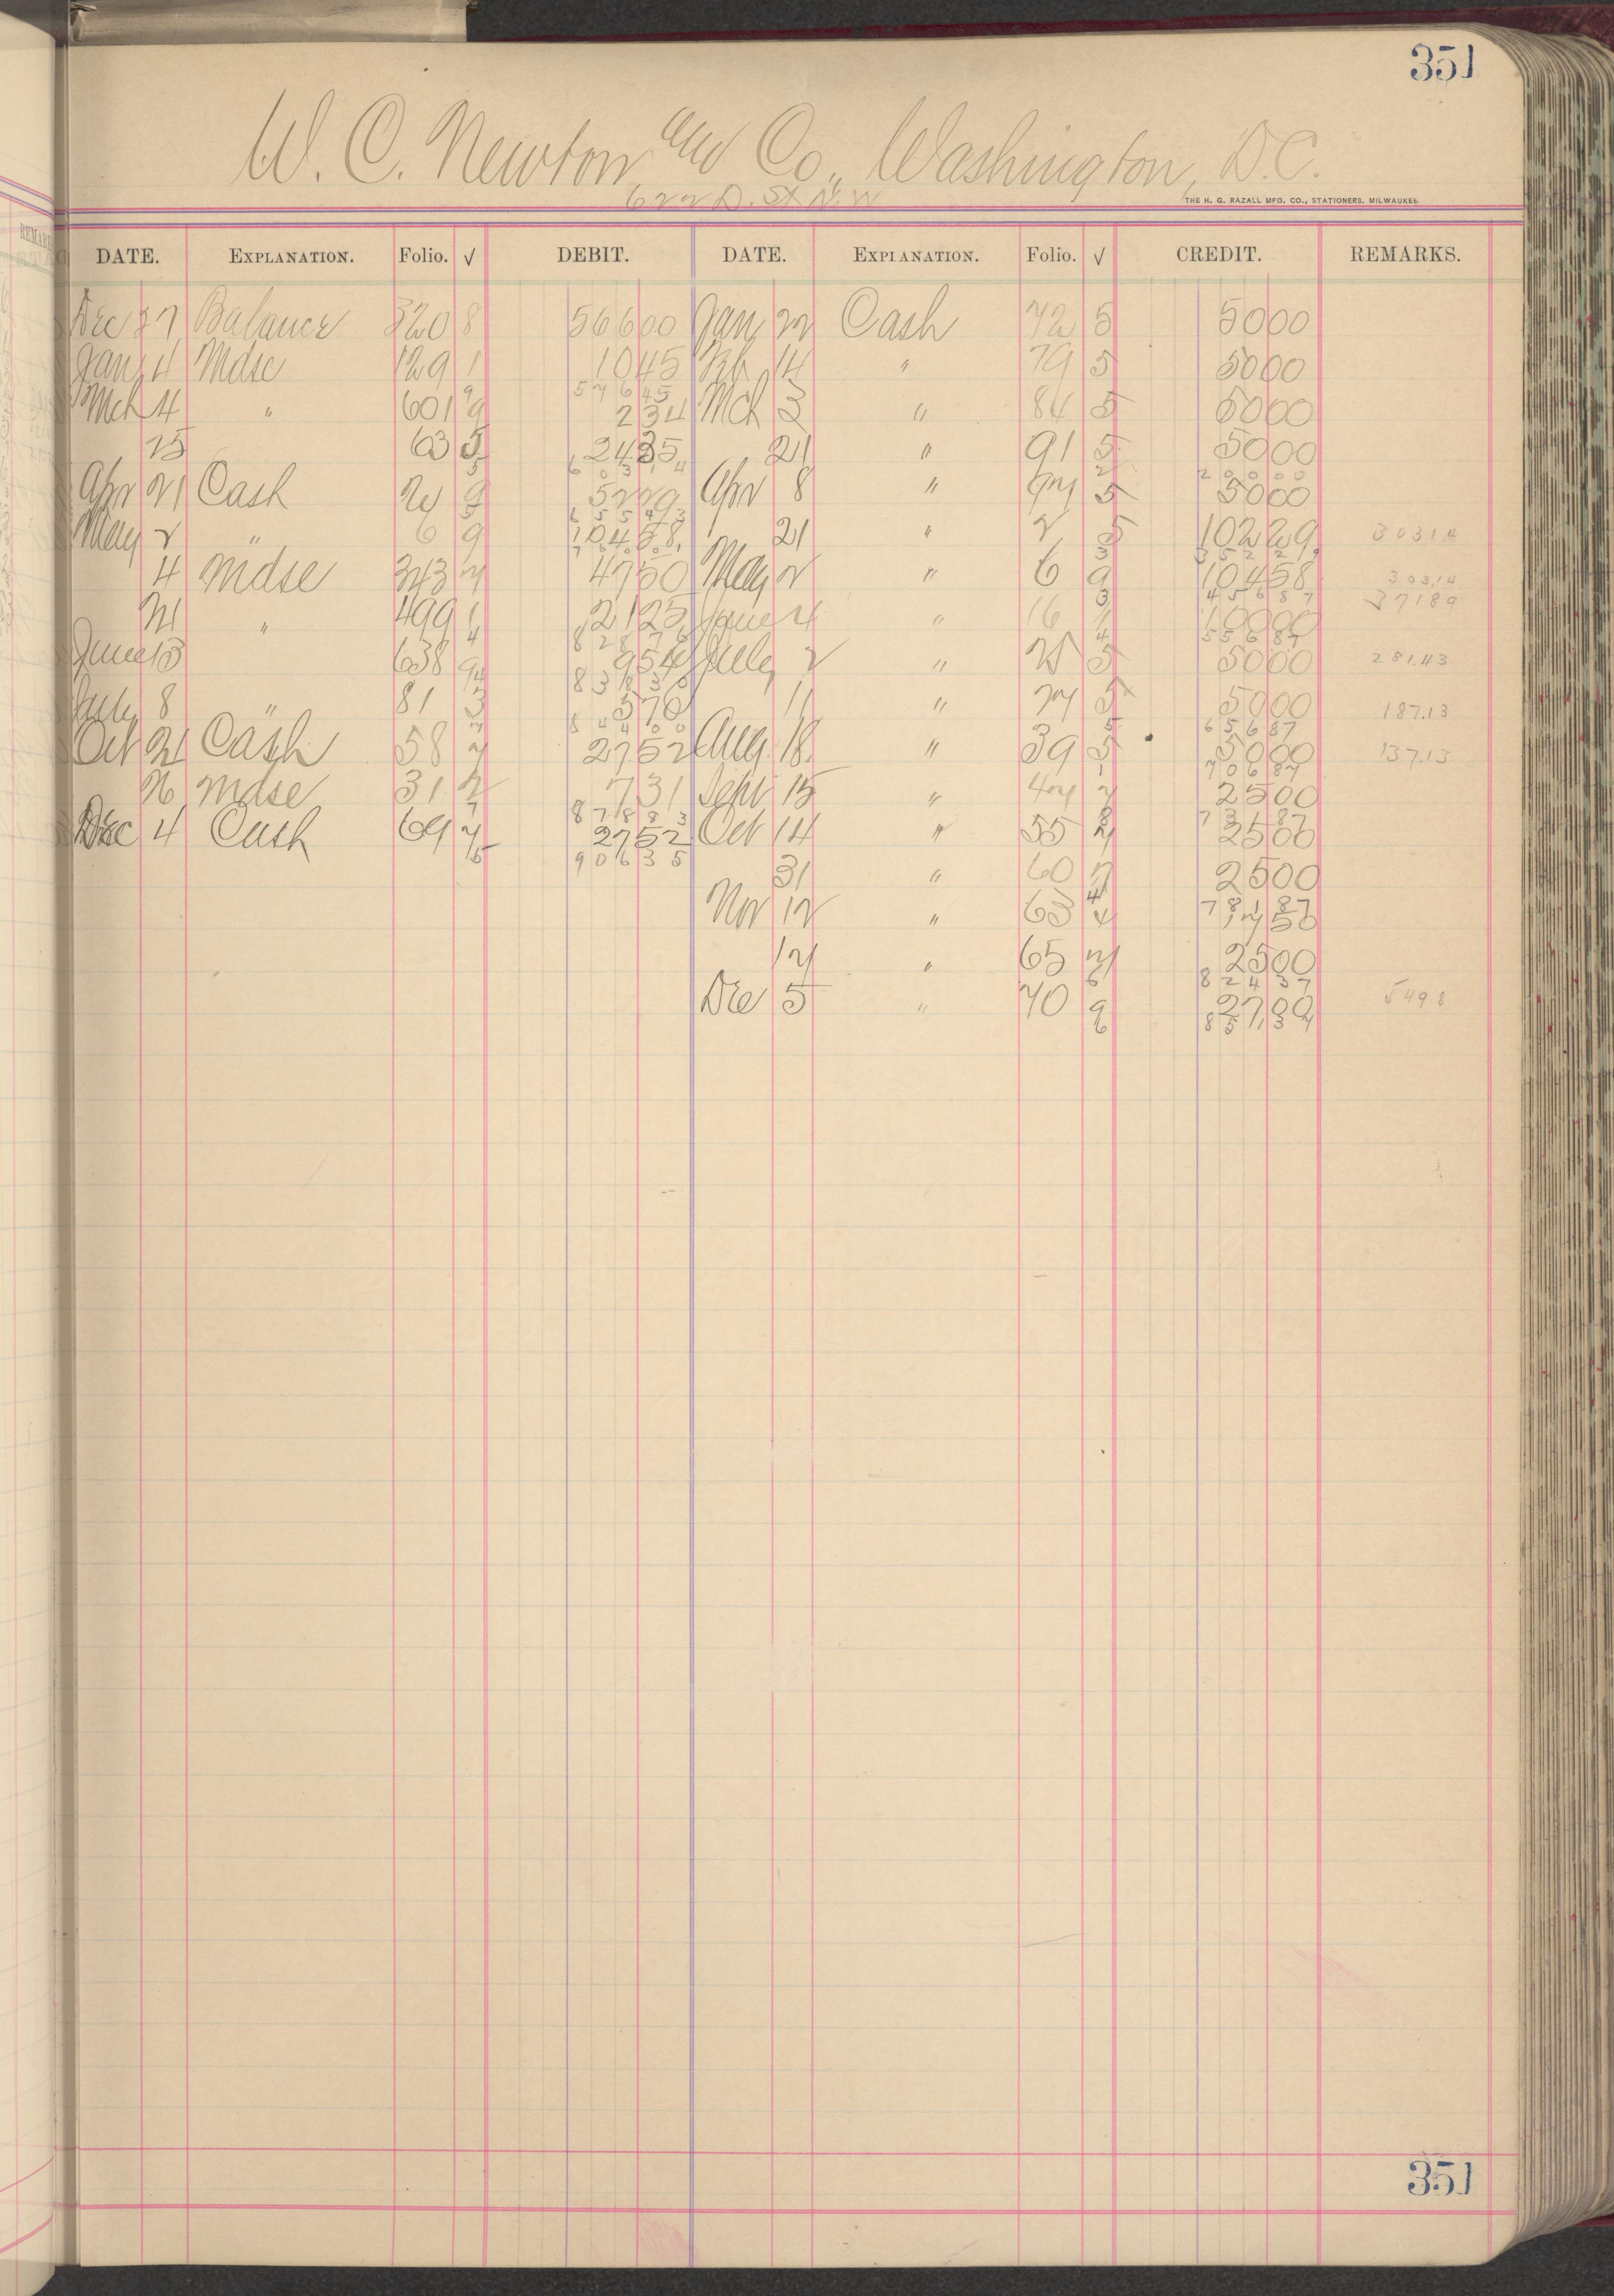 351
W. C. Newton and Co., Washington, D.C.
622 D. St N.W
THE H. G. RAZALL MFG. CO., STATIONERS, MILWAUKEE
DATE. EXPLANATION. Folio. √ DEBIT. DATE. EXPLANATION. Folio. √ CREDIT. REMARKS.
Dec 27 Balance 320 8 56600 Jan 22 Cash 72 5 5000
Jan 4 Mdse 129 1 1045 Feb 14 " 79 5 5000
57645
Mch 4 " 601 9 234 Mch 3 " 84 5 5000
25 63 5 2435 21 " 91 5 5000
6 0 3 1 4 20000
Apr 21 Cash 9 5229 Apr 8 " 97 5 5000
6 5 5 4 3
May 2 " 6 9 10458 21 " 2 5 10229 303.14
7 6 0 0 1 3 5 2 2 9
4 Mdse 343 7 4750 May 2 " 6 9 10458 303.14
4 5 6 8 7 37189
21 " 499 1 2125 June 4 " 16 1 10000
8 2 8 7 6 5 5 6 8 7
June 13 638 9 954 July 2 " 25 5 5000 281.43
8 3 8 3 0
July 8 " 81 3 570 11 " 27 5 5000 187.13
8 4 4 0 0 6 5 6 8 7
Oct 21 Cash 58 7 2752 Aug 18 " 39 5 5000 137.13
7 0 6 8 7
26 Mdse 31 2 731 Sept 15 " 47 7 2500
8 7 8 8 3 7 3 1 8 7
Dec 4 Cash 69 7 2752 Oct 14 " 55 7 2500
9 0 6 3 5
31 " 60 7 2500
7 8 1 8 7
Nov 12 " 63 4 1750
17 " 65 7 2500
8 2 4 3 7
Dec 5 " 70 9 2700 5498
8 5 1 3 7
351